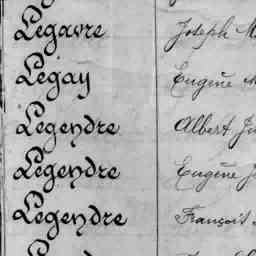 Legavre Joseph M
Legay Eugène
Legendre Albert Ju
Legendre Eugène J
Legendre François